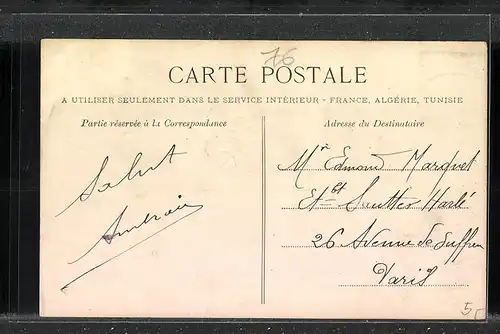 76
CARTE POSTALE
A UTILISER SEULEMENT DANS LE SERVICE INTÉRIEUR - FRANCE, ALGÉRIE, TUNISIE
Partie réservée à la Correspondance
Adresse du Destinataire
Salut
Mr Edmond Marquet
Etbt Sautter Harlé
26 Avenue de Suffren
Paris
5